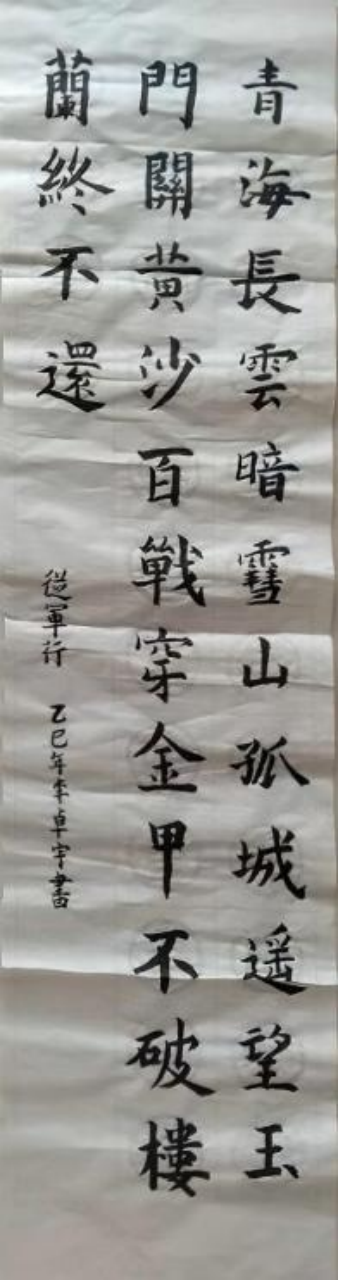 青海長雲暗雪山孤城遥望玉
門關黄沙百戰穿金甲不破樓
蘭終不還
從軍行
乙巳年李卓宇書